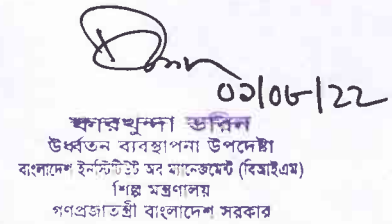 02/08/22
ফারখুন্দা ডরিন
উর্ধ্বতন ব্যবস্থাপনা উপদেষ্টা
বাংলাদেশ ইনস্টিটিউট অব ম্যানেজমেন্ট (বিআইএম)
শিল্প মন্ত্রণালয়
গণপ্রজাতন্ত্রী বাংলাদেশ সরকার